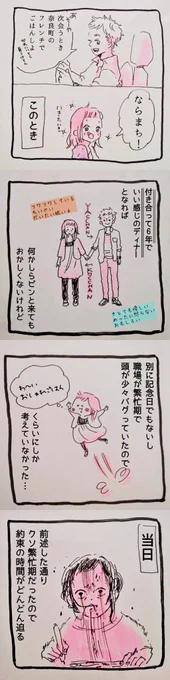 次会うとき
奈良町の
フレンチで
ごはんしよ
ならまち！
このとき
付き合って6年で
いい感じのディナー
となれば
何かしらピンと来ても
おかしくないけれど
別に記念日でもないし
職場が繁忙期で
頭が少々バグっていたので
わーい
おしゃれごはん
くらいにしか
考えていなかった…
当日
前述した通り
クソ繁忙期だったので
約束の時間がどんどん迫る